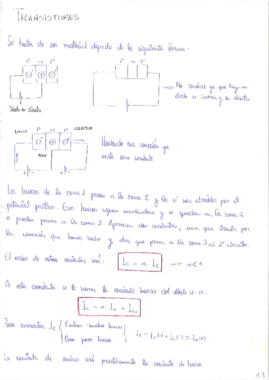 TRANSISTORES
Se trata de un material dopado de la siguiente forma:
P N P
P N P
No conduce ya que hay un
diodo en inversa y en directa
Diodo en directa
P N P
Haciendo esa conexión ya
existe una corriente
Los huecos de la zona 1 pasan a la zona 2 y los e⁻ son atraídos por el
potencial positivo. Esos huecos siguen acelerados y se quedan en la zona 2
o pueden pasar a la zona 3. Aparecen dos corrientes, una que circula por
la conexión que hemos hecho y otra que pasa a la zona 3 al 2º circuito.
El valor de estas corrientes será:
Ic = α IE
α<1
A esta corriente se le suma la corriente inversa del diodo
Ic = α IE + Ico
Para aumentar Ic
Entren muchos huecos
La corriente de emisor será prácticamente la corriente de huecos